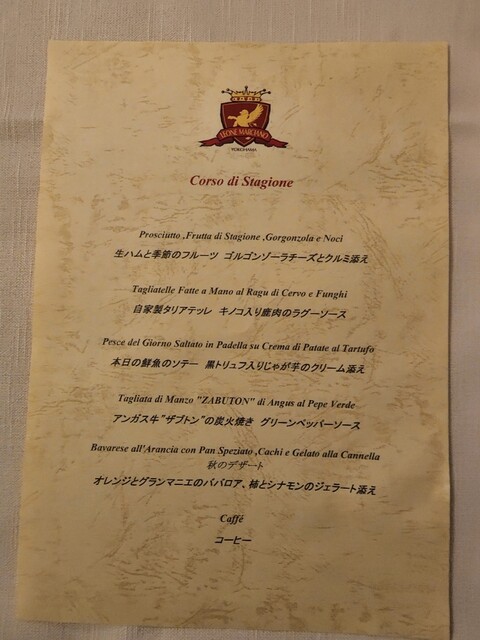 LEONE MARCIANO
YOKOHAMA
Corso di Stagione
Prosciutto ,Frutta di Stagione ,Gorgonzola e Noci
生ハムと季節のフルーツ ゴルゴンゾーラチーズとクルミ添え
Tagliatelle Fatte a Mano al Ragu di Cervo e Funghi
自家製タリアテッレ キノコ入り鹿肉のラグーソース
Pesce del Giorno Saltato in Padella su Crema di Patate al Tartufo
本日の鮮魚のソテー 黒トリュフ入りじゃが芋のクリーム添え
Tagliata di Manzo "ZABUTON" di Angus al Pepe Verde
アンガス牛"ザブトン"の炭火焼き グリーンペッパーソース
Bavarese all'Arancia con Pan Speziato ,Cachi e Gelato alla Cannella
秋のデザート
オレンジとグランマニエのババロア、柿とシナモンのジェラート添え
Caffé
コーヒー